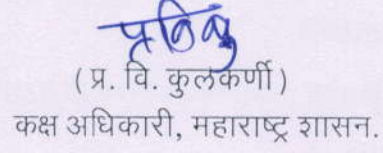 ( प्र. वि. कुलकर्णी )
कक्ष अधिकारी, महाराष्ट्र शासन.